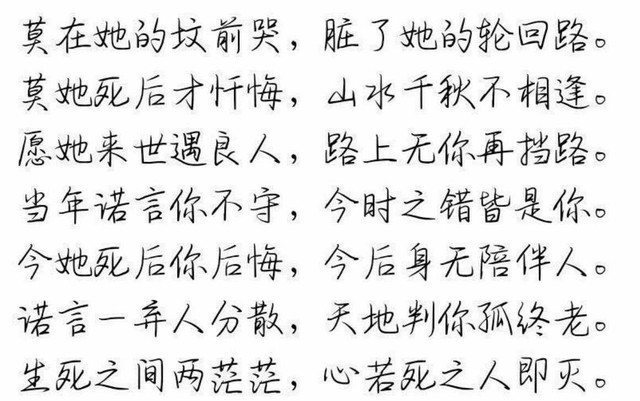 莫在她的坟前哭，脏了她的轮回路。
莫她死后才忏悔，山水千秋不相逢。
愿她来世遇良人，路上无你再挡路。
当年诺言你不守，今时之错皆是你。
今她死后你后悔，今后身无陪伴人。
诺言一弃人分散，天地判你孤终老。
生死之间两茫茫，心若死之人即灭。